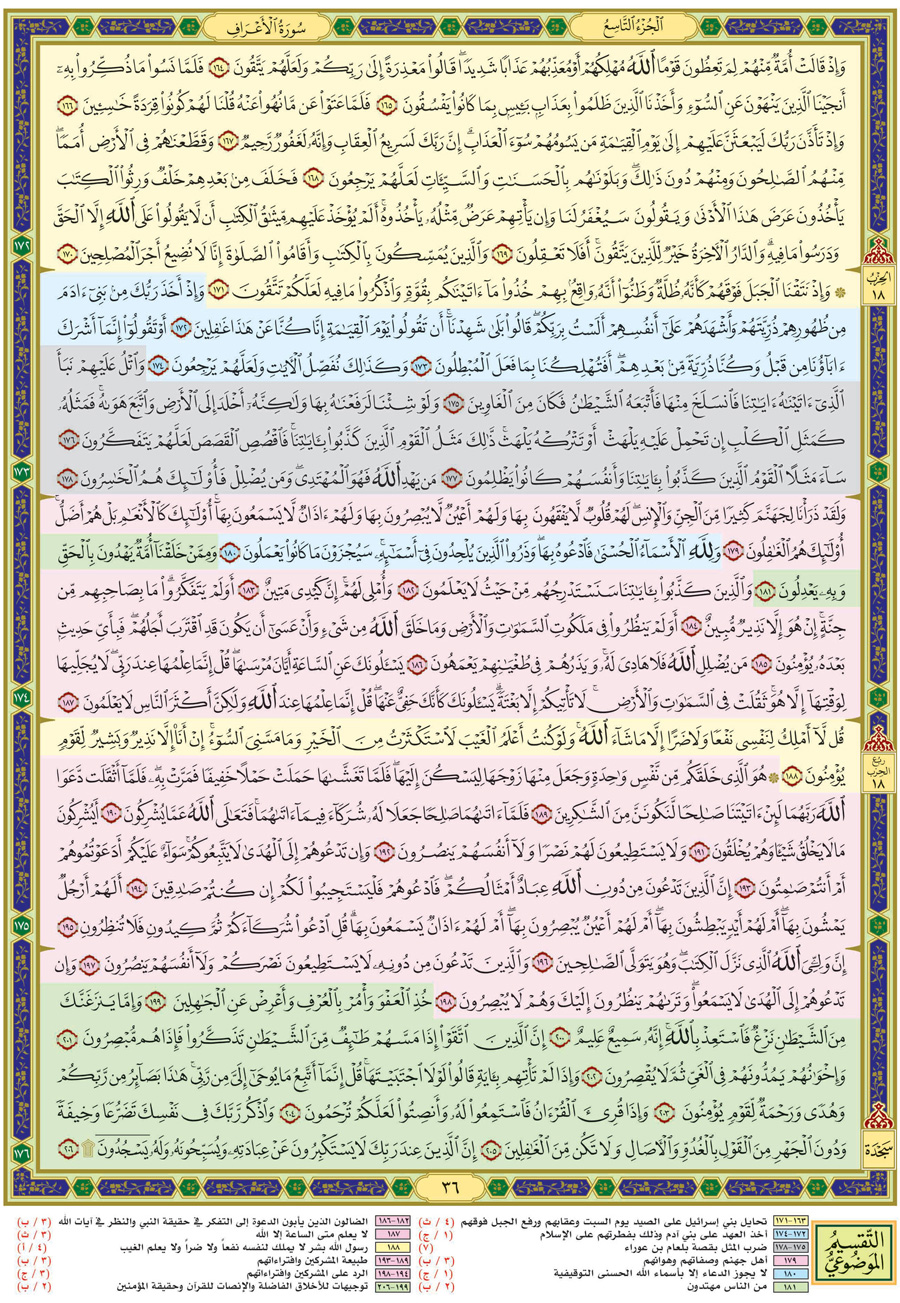 الجُزْءُ التَّاسِعُ
سُورَةُ الأَعْرَافِ
وَإِذْ قَالَتْ أُمَّةٌ مِّنْهُمْ لِمَ تَعِظُونَ قَوْمًا ٱللَّهُ مُهْلِكُهُمْ أَوْ مُعَذِّبُهُمْ عَذَابًا شَدِيدًا ۖ قَالُوا۟ مَعْذِرَةً إِلَىٰ رَبِّكُمْ وَلَعَلَّهُمْ يَتَّقُونَ ١٦٤ فَلَمَّا نَسُوا۟ مَا ذُكِّرُوا۟ بِهِۦٓ
أَنجَيْنَا ٱلَّذِينَ يَنْهَوْنَ عَنِ ٱلسُّوٓءِ وَأَخَذْنَا ٱلَّذِينَ ظَلَمُوا۟ بِعَذَابٍۭ بَـِٔيسٍۭ بِمَا كَانُوا۟ يَفْسُقُونَ ١٦٥ فَلَمَّا عَتَوْا۟ عَن مَّا نُهُوا۟ عَنْهُ قُلْنَا لَهُمْ كُونُوا۟ قِرَدَةً خَـٰسِـِٔينَ ١٦٦
وَإِذْ تَأَذَّنَ رَبُّكَ لَيَبْعَثَنَّ عَلَيْهِمْ إِلَىٰ يَوْمِ ٱلْقِيَـٰمَةِ مَن يَسُومُهُمْ سُوٓءَ ٱلْعَذَابِ ۗ إِنَّ رَبَّكَ لَسَرِيعُ ٱلْعِقَابِ ۖ وَإِنَّهُۥ لَغَفُورٌ رَّحِيمٌ ١٦٧ وَقَطَّعْنَـٰهُمْ فِى ٱلْأَرْضِ أُمَمًا ۖ
مِّنْهُمُ ٱلصَّـٰلِحُونَ وَمِنْهُمْ دُونَ ذَٰلِكَ ۖ وَبَلَوْنَـٰهُم بِٱلْحَسَنَـٰتِ وَٱلسَّيِّـَٔاتِ لَعَلَّهُمْ يَرْجِعُونَ ١٦٨ فَخَلَفَ مِنۢ بَعْدِهِمْ خَلْفٌ وَرِثُوا۟ ٱلْكِتَـٰبَ
يَأْخُذُونَ عَرَضَ هَـٰذَا ٱلْأَدْنَىٰ وَيَقُولُونَ سَيُغْفَرُ لَنَا وَإِن يَأْتِهِمْ عَرَضٌ مِّثْلُهُۥ يَأْخُذُوهُ ۚ أَلَمْ يُؤْخَذْ عَلَيْهِم مِّيثَـٰقُ ٱلْكِتَـٰبِ أَن لَّا يَقُولُوا۟ عَلَى ٱللَّهِ إِلَّا ٱلْحَقَّ
وَدَرَسُوا۟ مَا فِيهِ ۗ وَٱلدَّارُ ٱلْـَٔاخِرَةُ خَيْرٌ لِّلَّذِينَ يَتَّقُونَ ۗ أَفَلَا تَعْقِلُونَ ١٦٩ وَٱلَّذِينَ يُمَسِّكُونَ بِٱلْكِتَـٰبِ وَأَقَامُوا۟ ٱلصَّلَوٰةَ إِنَّا لَا نُضِيعُ أَجْرَ ٱلْمُصْلِحِينَ ١٧٠
١٧٢
الحزب
١٨
۞ وَإِذْ نَتَقْنَا ٱلْجَبَلَ فَوْقَهُمْ كَأَنَّهُۥ ظُلَّةٌ وَظَنُّوٓا۟ أَنَّهُۥ وَاقِعٌۢ بِهِمْ خُذُوا۟ مَآ ءَاتَيْنَـٰكُم بِقُوَّةٍ وَٱذْكُرُوا۟ مَا فِيهِ لَعَلَّكُمْ تَتَّقُونَ ١٧١ وَإِذْ أَخَذَ رَبُّكَ مِنۢ بَنِىٓ ءَادَمَ
مِن ظُهُورِهِمْ ذُرِّيَّتَهُمْ وَأَشْهَدَهُمْ عَلَىٰٓ أَنفُسِهِمْ أَلَسْتُ بِرَبِّكُمْ ۖ قَالُوا۟ بَلَىٰ ۛ شَهِدْنَآ ۛ أَن تَقُولُوا۟ يَوْمَ ٱلْقِيَـٰمَةِ إِنَّا كُنَّا عَنْ هَـٰذَا غَـٰفِلِينَ ١٧٢ أَوْ تَقُولُوٓا۟ إِنَّمَآ أَشْرَكَ
ءَابَآؤُنَا مِن قَبْلُ وَكُنَّا ذُرِّيَّةً مِّنۢ بَعْدِهِمْ ۖ أَفَتُهْلِكُنَا بِمَا فَعَلَ ٱلْمُبْطِلُونَ ١٧٣ وَكَذَٰلِكَ نُفَصِّلُ ٱلْـَٔايَـٰتِ وَلَعَلَّهُمْ يَرْجِعُونَ ١٧٤ وَٱتْلُ عَلَيْهِمْ نَبَأَ
ٱلَّذِىٓ ءَاتَيْنَـٰهُ ءَايَـٰتِنَا فَٱنسَلَخَ مِنْهَا فَأَتْبَعَهُ ٱلشَّيْطَـٰنُ فَكَانَ مِنَ ٱلْغَاوِينَ ١٧٥ وَلَوْ شِئْنَا لَرَفَعْنَـٰهُ بِهَا وَلَـٰكِنَّهُۥٓ أَخْلَدَ إِلَى ٱلْأَرْضِ وَٱتَّبَعَ هَوَىٰهُ ۚ فَمَثَلُهُۥ
كَمَثَلِ ٱلْكَلْبِ إِن تَحْمِلْ عَلَيْهِ يَلْهَثْ أَوْ تَتْرُكْهُ يَلْهَث ۚ ذَّٰلِكَ مَثَلُ ٱلْقَوْمِ ٱلَّذِينَ كَذَّبُوا۟ بِـَٔايَـٰتِنَا ۚ فَٱقْصُصِ ٱلْقَصَصَ لَعَلَّهُمْ يَتَفَكَّرُونَ ١٧٦
١٧٣
سَآءَ مَثَلًا ٱلْقَوْمُ ٱلَّذِينَ كَذَّبُوا۟ بِـَٔايَـٰتِنَا وَأَنفُسَهُمْ كَانُوا۟ يَظْلِمُونَ ١٧٧ مَن يَهْدِ ٱللَّهُ فَهُوَ ٱلْمُهْتَدِى ۖ وَمَن يُضْلِلْ فَأُو۟لَـٰٓئِكَ هُمُ ٱلْخَـٰسِرُونَ ١٧٨
وَلَقَدْ ذَرَأْنَا لِجَهَنَّمَ كَثِيرًا مِّنَ ٱلْجِنِّ وَٱلْإِنسِ ۖ لَهُمْ قُلُوبٌ لَّا يَفْقَهُونَ بِهَا وَلَهُمْ أَعْيُنٌ لَّا يُبْصِرُونَ بِهَا وَلَهُمْ ءَاذَانٌ لَّا يَسْمَعُونَ بِهَآ ۚ أُو۟لَـٰٓئِكَ كَٱلْأَنْعَـٰمِ بَلْ هُمْ أَضَلُّ ۚ
أُو۟لَـٰٓئِكَ هُمُ ٱلْغَـٰفِلُونَ ١٧٩ وَلِلَّهِ ٱلْأَسْمَآءُ ٱلْحُسْنَىٰ فَٱدْعُوهُ بِهَا ۖ وَذَرُوا۟ ٱلَّذِينَ يُلْحِدُونَ فِىٓ أَسْمَـٰٓئِهِۦ ۚ سَيُجْزَوْنَ مَا كَانُوا۟ يَعْمَلُونَ ١٨٠ وَمِمَّنْ خَلَقْنَآ أُمَّةٌ يَهْدُونَ بِٱلْحَقِّ
وَبِهِۦ يَعْدِلُونَ ١٨١ وَٱلَّذِينَ كَذَّبُوا۟ بِـَٔايَـٰتِنَا سَنَسْتَدْرِجُهُم مِّنْ حَيْثُ لَا يَعْلَمُونَ ١٨٢ وَأُمْلِى لَهُمْ ۚ إِنَّ كَيْدِى مَتِينٌ ١٨٣ أَوَلَمْ يَتَفَكَّرُوا۟ ۗ مَا بِصَاحِبِهِم مِّن
جِنَّةٍ ۚ إِنْ هُوَ إِلَّا نَذِيرٌ مُّبِينٌ ١٨٤ أَوَلَمْ يَنظُرُوا۟ فِى مَلَكُوتِ ٱلسَّمَـٰوَٰتِ وَٱلْأَرْضِ وَمَا خَلَقَ ٱللَّهُ مِن شَىْءٍ وَأَنْ عَسَىٰٓ أَن يَكُونَ قَدِ ٱقْتَرَبَ أَجَلُهُمْ ۖ فَبِأَىِّ حَدِيثٍۭ
بَعْدَهُۥ يُؤْمِنُونَ ١٨٥ مَن يُضْلِلِ ٱللَّهُ فَلَا هَادِىَ لَهُۥ ۚ وَيَذَرُهُمْ فِى طُغْيَـٰنِهِمْ يَعْمَهُونَ ١٨٦ يَسْـَٔلُونَكَ عَنِ ٱلسَّاعَةِ أَيَّانَ مُرْسَىٰهَا ۖ قُلْ إِنَّمَا عِلْمُهَا عِندَ رَبِّى ۖ لَا يُجَلِّيهَا
١٧٤
لِوَقْتِهَآ إِلَّا هُوَ ۚ ثَقُلَتْ فِى ٱلسَّمَـٰوَٰتِ وَٱلْأَرْضِ ۚ لَا تَأْتِيكُمْ إِلَّا بَغْتَةً ۗ يَسْـَٔلُونَكَ كَأَنَّكَ حَفِىٌّ عَنْهَا ۖ قُلْ إِنَّمَا عِلْمُهَا عِندَ ٱللَّهِ وَلَـٰكِنَّ أَكْثَرَ ٱلنَّاسِ لَا يَعْلَمُونَ ١٨٧
قُل لَّآ أَمْلِكُ لِنَفْسِى نَفْعًا وَلَا ضَرًّا إِلَّا مَا شَآءَ ٱللَّهُ ۚ وَلَوْ كُنتُ أَعْلَمُ ٱلْغَيْبَ لَٱسْتَكْثَرْتُ مِنَ ٱلْخَيْرِ وَمَا مَسَّنِىَ ٱلسُّوٓءُ ۚ إِنْ أَنَا۠ إِلَّا نَذِيرٌ وَبَشِيرٌ لِّقَوْمٍ
ربع
الحزب
١٨
يُؤْمِنُونَ ١٨٨ ۞ هُوَ ٱلَّذِى خَلَقَكُم مِّن نَّفْسٍ وَٰحِدَةٍ وَجَعَلَ مِنْهَا زَوْجَهَا لِيَسْكُنَ إِلَيْهَا ۖ فَلَمَّا تَغَشَّىٰهَا حَمَلَتْ حَمْلًا خَفِيفًا فَمَرَّتْ بِهِۦ ۖ فَلَمَّآ أَثْقَلَت دَّعَوَا
ٱللَّهَ رَبَّهُمَا لَئِنْ ءَاتَيْتَنَا صَـٰلِحًا لَّنَكُونَنَّ مِنَ ٱلشَّـٰكِرِينَ ١٨٩ فَلَمَّآ ءَاتَىٰهُمَا صَـٰلِحًا جَعَلَا لَهُۥ شُرَكَآءَ فِيمَآ ءَاتَىٰهُمَا ۚ فَتَعَـٰلَى ٱللَّهُ عَمَّا يُشْرِكُونَ ١٩٠ أَيُشْرِكُونَ
مَا لَا يَخْلُقُ شَيْـًٔا وَهُمْ يُخْلَقُونَ ١٩١ وَلَا يَسْتَطِيعُونَ لَهُمْ نَصْرًا وَلَآ أَنفُسَهُمْ يَنصُرُونَ ١٩٢ وَإِن تَدْعُوهُمْ إِلَى ٱلْهُدَىٰ لَا يَتَّبِعُوكُمْ ۚ سَوَآءٌ عَلَيْكُمْ أَدَعَوْتُمُوهُمْ
أَمْ أَنتُمْ صَـٰمِتُونَ ١٩٣ إِنَّ ٱلَّذِينَ تَدْعُونَ مِن دُونِ ٱللَّهِ عِبَادٌ أَمْثَالُكُمْ ۖ فَٱدْعُوهُمْ فَلْيَسْتَجِيبُوا۟ لَكُمْ إِن كُنتُمْ صَـٰدِقِينَ ١٩٤ أَلَهُمْ أَرْجُلٌ
١٧٥
يَمْشُونَ بِهَآ ۖ أَمْ لَهُمْ أَيْدٍ يَبْطِشُونَ بِهَآ ۖ أَمْ لَهُمْ أَعْيُنٌ يُبْصِرُونَ بِهَآ ۖ أَمْ لَهُمْ ءَاذَانٌ يَسْمَعُونَ بِهَا ۗ قُلِ ٱدْعُوا۟ شُرَكَآءَكُمْ ثُمَّ كِيدُونِ فَلَا تُنظِرُونِ ١٩٥
إِنَّ وَلِـِّۧىَ ٱللَّهُ ٱلَّذِى نَزَّلَ ٱلْكِتَـٰبَ ۖ وَهُوَ يَتَوَلَّى ٱلصَّـٰلِحِينَ ١٩٦ وَٱلَّذِينَ تَدْعُونَ مِن دُونِهِۦ لَا يَسْتَطِيعُونَ نَصْرَكُمْ وَلَآ أَنفُسَهُمْ يَنصُرُونَ ١٩٧ وَإِن
تَدْعُوهُمْ إِلَى ٱلْهُدَىٰ لَا يَسْمَعُوا۟ ۖ وَتَرَىٰهُمْ يَنظُرُونَ إِلَيْكَ وَهُمْ لَا يُبْصِرُونَ ١٩٨ خُذِ ٱلْعَفْوَ وَأْمُرْ بِٱلْعُرْفِ وَأَعْرِضْ عَنِ ٱلْجَـٰهِلِينَ ١٩٩ وَإِمَّا يَنزَغَنَّكَ
مِنَ ٱلشَّيْطَـٰنِ نَزْغٌ فَٱسْتَعِذْ بِٱللَّهِ ۚ إِنَّهُۥ سَمِيعٌ عَلِيمٌ ٢٠٠ إِنَّ ٱلَّذِينَ ٱتَّقَوْا۟ إِذَا مَسَّهُمْ طَـٰٓئِفٌ مِّنَ ٱلشَّيْطَـٰنِ تَذَكَّرُوا۟ فَإِذَا هُم مُّبْصِرُونَ ٢٠١
وَإِخْوَٰنُهُمْ يَمُدُّونَهُمْ فِى ٱلْغَىِّ ثُمَّ لَا يُقْصِرُونَ ٢٠٢ وَإِذَا لَمْ تَأْتِهِم بِـَٔايَةٍ قَالُوا۟ لَوْلَا ٱجْتَبَيْتَهَا ۚ قُلْ إِنَّمَآ أَتَّبِعُ مَا يُوحَىٰٓ إِلَىَّ مِن رَّبِّى ۚ هَـٰذَا بَصَآئِرُ مِن رَّبِّكُمْ
وَهُدًى وَرَحْمَةٌ لِّقَوْمٍ يُؤْمِنُونَ ٢٠٣ وَإِذَا قُرِئَ ٱلْقُرْءَانُ فَٱسْتَمِعُوا۟ لَهُۥ وَأَنصِتُوا۟ لَعَلَّكُمْ تُرْحَمُونَ ٢٠٤ وَٱذْكُر رَّبَّكَ فِى نَفْسِكَ تَضَرُّعًا وَخِيفَةً
وَدُونَ ٱلْجَهْرِ مِنَ ٱلْقَوْلِ بِٱلْغُدُوِّ وَٱلْـَٔاصَالِ وَلَا تَكُن مِّنَ ٱلْغَـٰفِلِينَ ٢٠٥ إِنَّ ٱلَّذِينَ عِندَ رَبِّكَ لَا يَسْتَكْبِرُونَ عَنْ عِبَادَتِهِۦ وَيُسَبِّحُونَهُۥ وَلَهُۥ يَسْجُدُونَ ۩ ٢٠٦
سَجْدَة
١٧٦
٣٦
التَّقسِيمُ
المَوضُوعِيُّ
١٦٣-١٧١ تحايل بني إسرائيل على الصيد يوم السبت وعقابهم ورفع الجبل فوقهم (٤ / ث)
١٧٢-١٧٤ أخذ العهد على بني آدم وذلك بفطرتهم على الإسلام (١ / ج)
١٧٥-١٧٨ ضرب المثل بقصة بلعام بن عوراء (٧)
١٧٩ أهل جهنم وصفاتهم وهوانهم (٣ / ب)
١٨٠ لا يجوز الدعاء إلا بأسماء الله الحسنى التوقيفية (١ / ج)
١٨١ من الناس مهتدون (٢ / ب)
١٨٢-١٨٦ الضالون الذين يأبون الدعوة إلى التفكر في حقيقة النبي والنظر في آيات الله (٣ / ب)
١٨٧ لا يعلم متى الساعة إلا الله (٣ / ث)
١٨٨ رسول الله بشر لا يملك لنفسه نفعاً ولا ضراً ولا يعلم الغيب (٤ / أ)
١٨٩-١٩٣ طبيعة المشركين وافتراءاتهم (٣ / ب)
١٩٤-١٩٨ الرد على المشركين وافتراءاتهم (٣ / ج)
١٩٩-٢٠٦ توجيهات للأخلاق الفاضلة والإنصات للقرآن وحقيقة المؤمنين (٢ / ب)